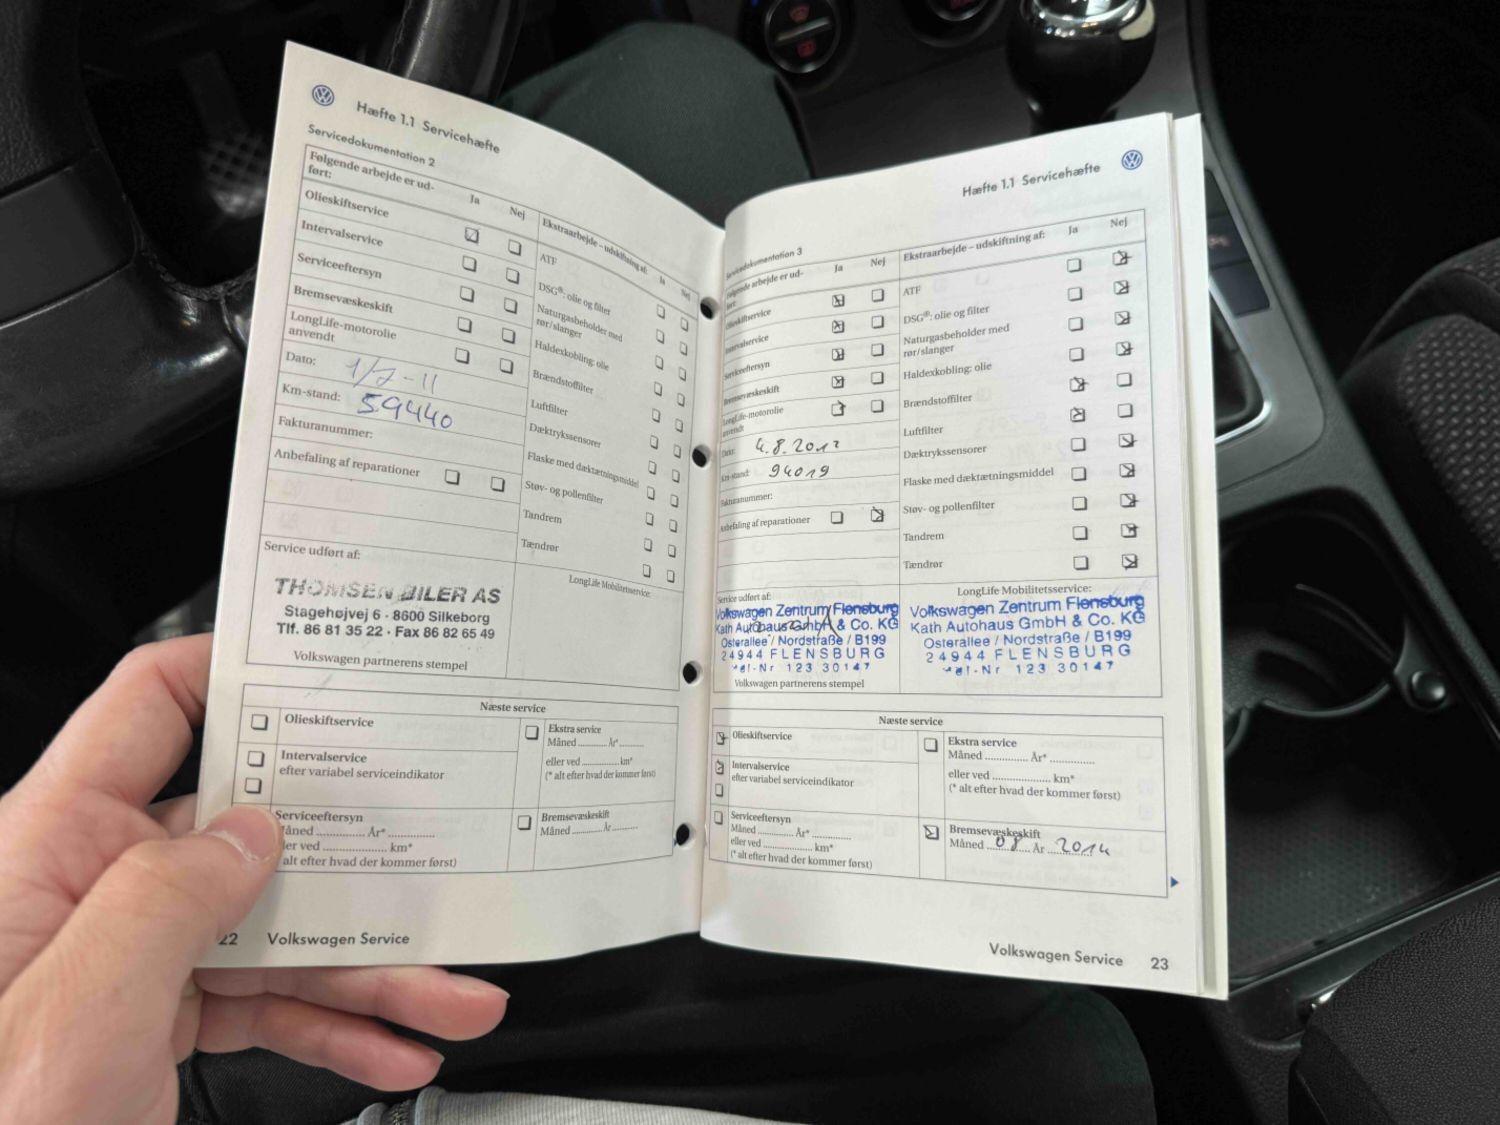 Hæfte 1.1 Servicehæfte
Servicedokumentation 2
Følgende arbejde er ud-
ført:
Ja
Nej
Olieskiftservice
Intervalservice
Serviceeftersyn
Bremsevæskeskift
LongLife-motorolie
anvendt
Dato: 1/7-11
Km-stand: 59440
Fakturanummer:
Anbefaling af reparationer
Ekstraarbejde – udskiftning af:
Ja
Nej
ATF
DSG®: olie og filter
Naturgasbeholder med
rør/slanger
Haldexkobling: olie
Brændstoffilter
Luftfilter
Dæktrykssensorer
Flaske med dæktætningsmiddel
Støv- og pollenfilter
Tandrem
Tændrør
Service udført af:
THOMSEN BILER AS
Stagehøjvej 6 - 8600 Silkeborg
Tlf. 86 81 35 22 · Fax 86 82 65 49
Volkswagen partnerens stempel
LongLife Mobilitetsservice:
Næste service
Olieskiftservice
Intervalservice
efter variabel serviceindikator
Serviceeftersyn
Måned .............. År* ..............
ler ved .................. km*
alt efter hvad der kommer først)
Ekstra service
Måned .......... År* ..........
eller ved .............. km*
(* alt efter hvad der kommer først)
Bremsevæskeskift
Måned .......... År ..........
22 Volkswagen Service
Hæfte 1.1 Servicehæfte
Servicedokumentation 3
Følgende arbejde er ud-
ført:
Ja
Nej
Olieskiftservice
Intervalservice
Serviceeftersyn
Bremsevæskeskift
LongLife-motorolie
anvendt
Dato: 4.8.2012
Km-stand: 94019
Fakturanummer:
Anbefaling af reparationer
Ekstraarbejde – udskiftning af:
Ja
Nej
ATF
DSG®: olie og filter
Naturgasbeholder med
rør/slanger
Haldexkobling: olie
Brændstoffilter
Luftfilter
Dæktrykssensorer
Flaske med dæktætningsmiddel
Støv- og pollenfilter
Tandrem
Tændrør
Service udført af:
Volkswagen Zentrum Flensburg
Kath Autohaus GmbH & Co. KG
Osterallee / Nordstraße / B199
24944 FLENSBURG
123 30147
Volkswagen partnerens stempel
LongLife Mobilitetsservice:
Volkswagen Zentrum Flensburg
Kath Autohaus GmbH & Co. KG
Osterallee / Nordstraße / B199
24944 FLENSBURG
123 30147
Næste service
Olieskiftservice
Intervalservice
efter variabel serviceindikator
Serviceeftersyn
Måned .............. År* ..............
eller ved .................. km*
(* alt efter hvad der kommer først)
Ekstra service
Måned .............. År* ..............
eller ved .................. km*
(* alt efter hvad der kommer først)
Bremsevæskeskift
Måned 08 År 2014
Volkswagen Service 23